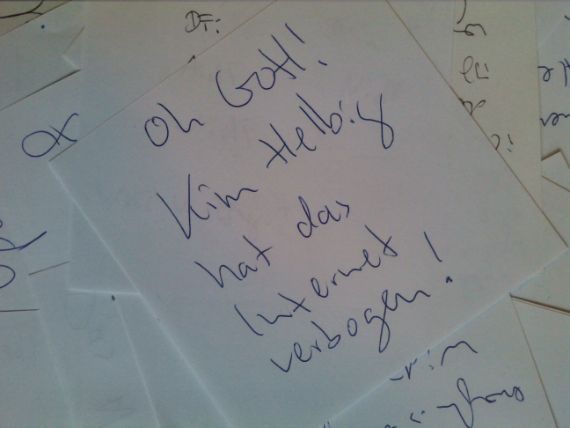 Oh Gott!
Kim Helbig
hat das
Internet
verbogen!